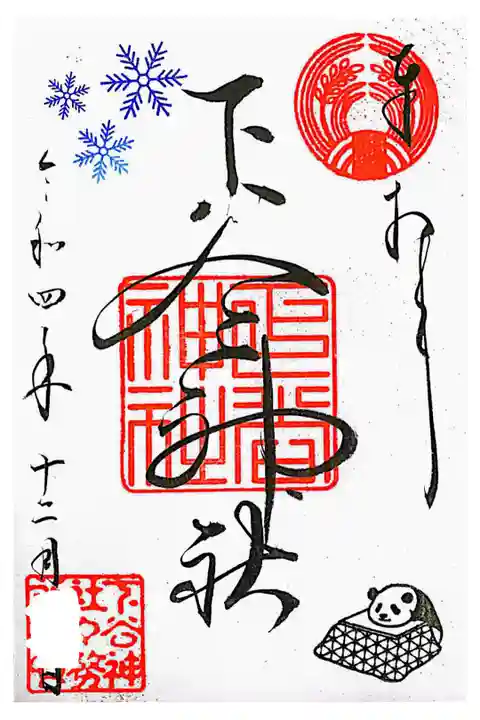 奉拝
下谷神社
令和四年十二月 日
下谷
神社
下谷神
社